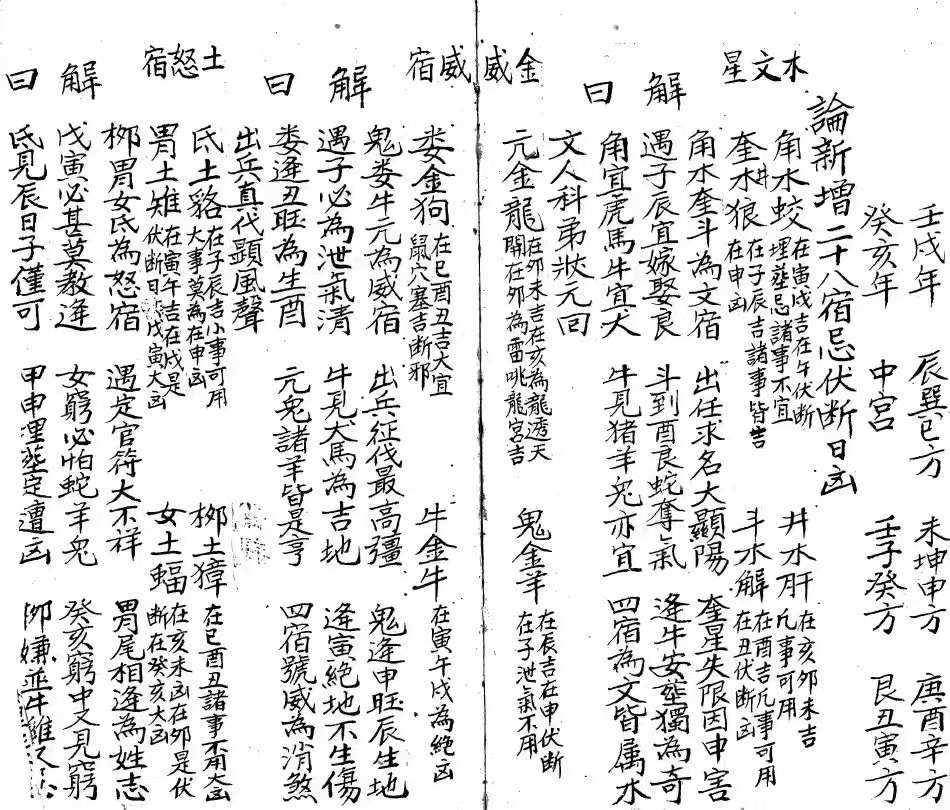 壬戌年 辰巽巳方 未坤申方 庚酉辛方
癸亥年 中宮 壬子癸方 艮丑寅方
論新增二十八宿忌伏断日凶
木文星
角水蛟 在寅戌吉在午伏断 埋塟忌諸事不宜
井水犴 在亥卯未吉 凡事可用
奎水狼 在子辰吉諸事皆吉 在申凶
斗水解 在酉吉凡事可用 在丑伏断凶
解曰
角水奎斗為文宿 出任求名大顯陽 奎星失限因申害
遇子辰宜嫁娶良 斗到酉良蛇奪氣 逢牛安塟獨為奇
角宜虎馬牛宜犬 牛見猪羊兔亦宜 四宿為文皆属水
文人科弟狀元回
金威
亢金龍 在丑卯未吉在亥為龍透天 開在卯為雷咷龍宮吉
鬼金羊 在辰吉在申伏断 在子泄氣不用
威宿
娄金狗 在巳酉丑吉大宜 鼠穴塞吉断邪
牛金牛 在寅午戌為絕凶
解曰
鬼娄牛亢為威宿 出兵征伐最高彊 鬼逢申旺辰生地
遇子必為泄氣清 牛見犬馬為吉地 逢寅絕地不生傷
娄逢丑旺為生酉 亢兔諸羊皆是亨 四宿號威為消煞
出兵直代顯風聲
土怒宿
氐土貉 在子辰吉小事可用 大事莫為在申凶
柳土獐 在巳酉丑諸事不用大凶
胃土雉 在寅午吉在戌是 伏断日戊寅大凶
女土蝠 在亥未凶在卯是伏 断在癸亥大凶
解曰
柳胃女氐為怒宿 遇定官符大不祥 胃尾相逢為姓志
戊寅必甚莫教逢 女窮必怕蛇羊兔 癸亥窮中又見窮
氐見辰日子僅可 甲申埋塟定遭凶 卯嫌並牛雞